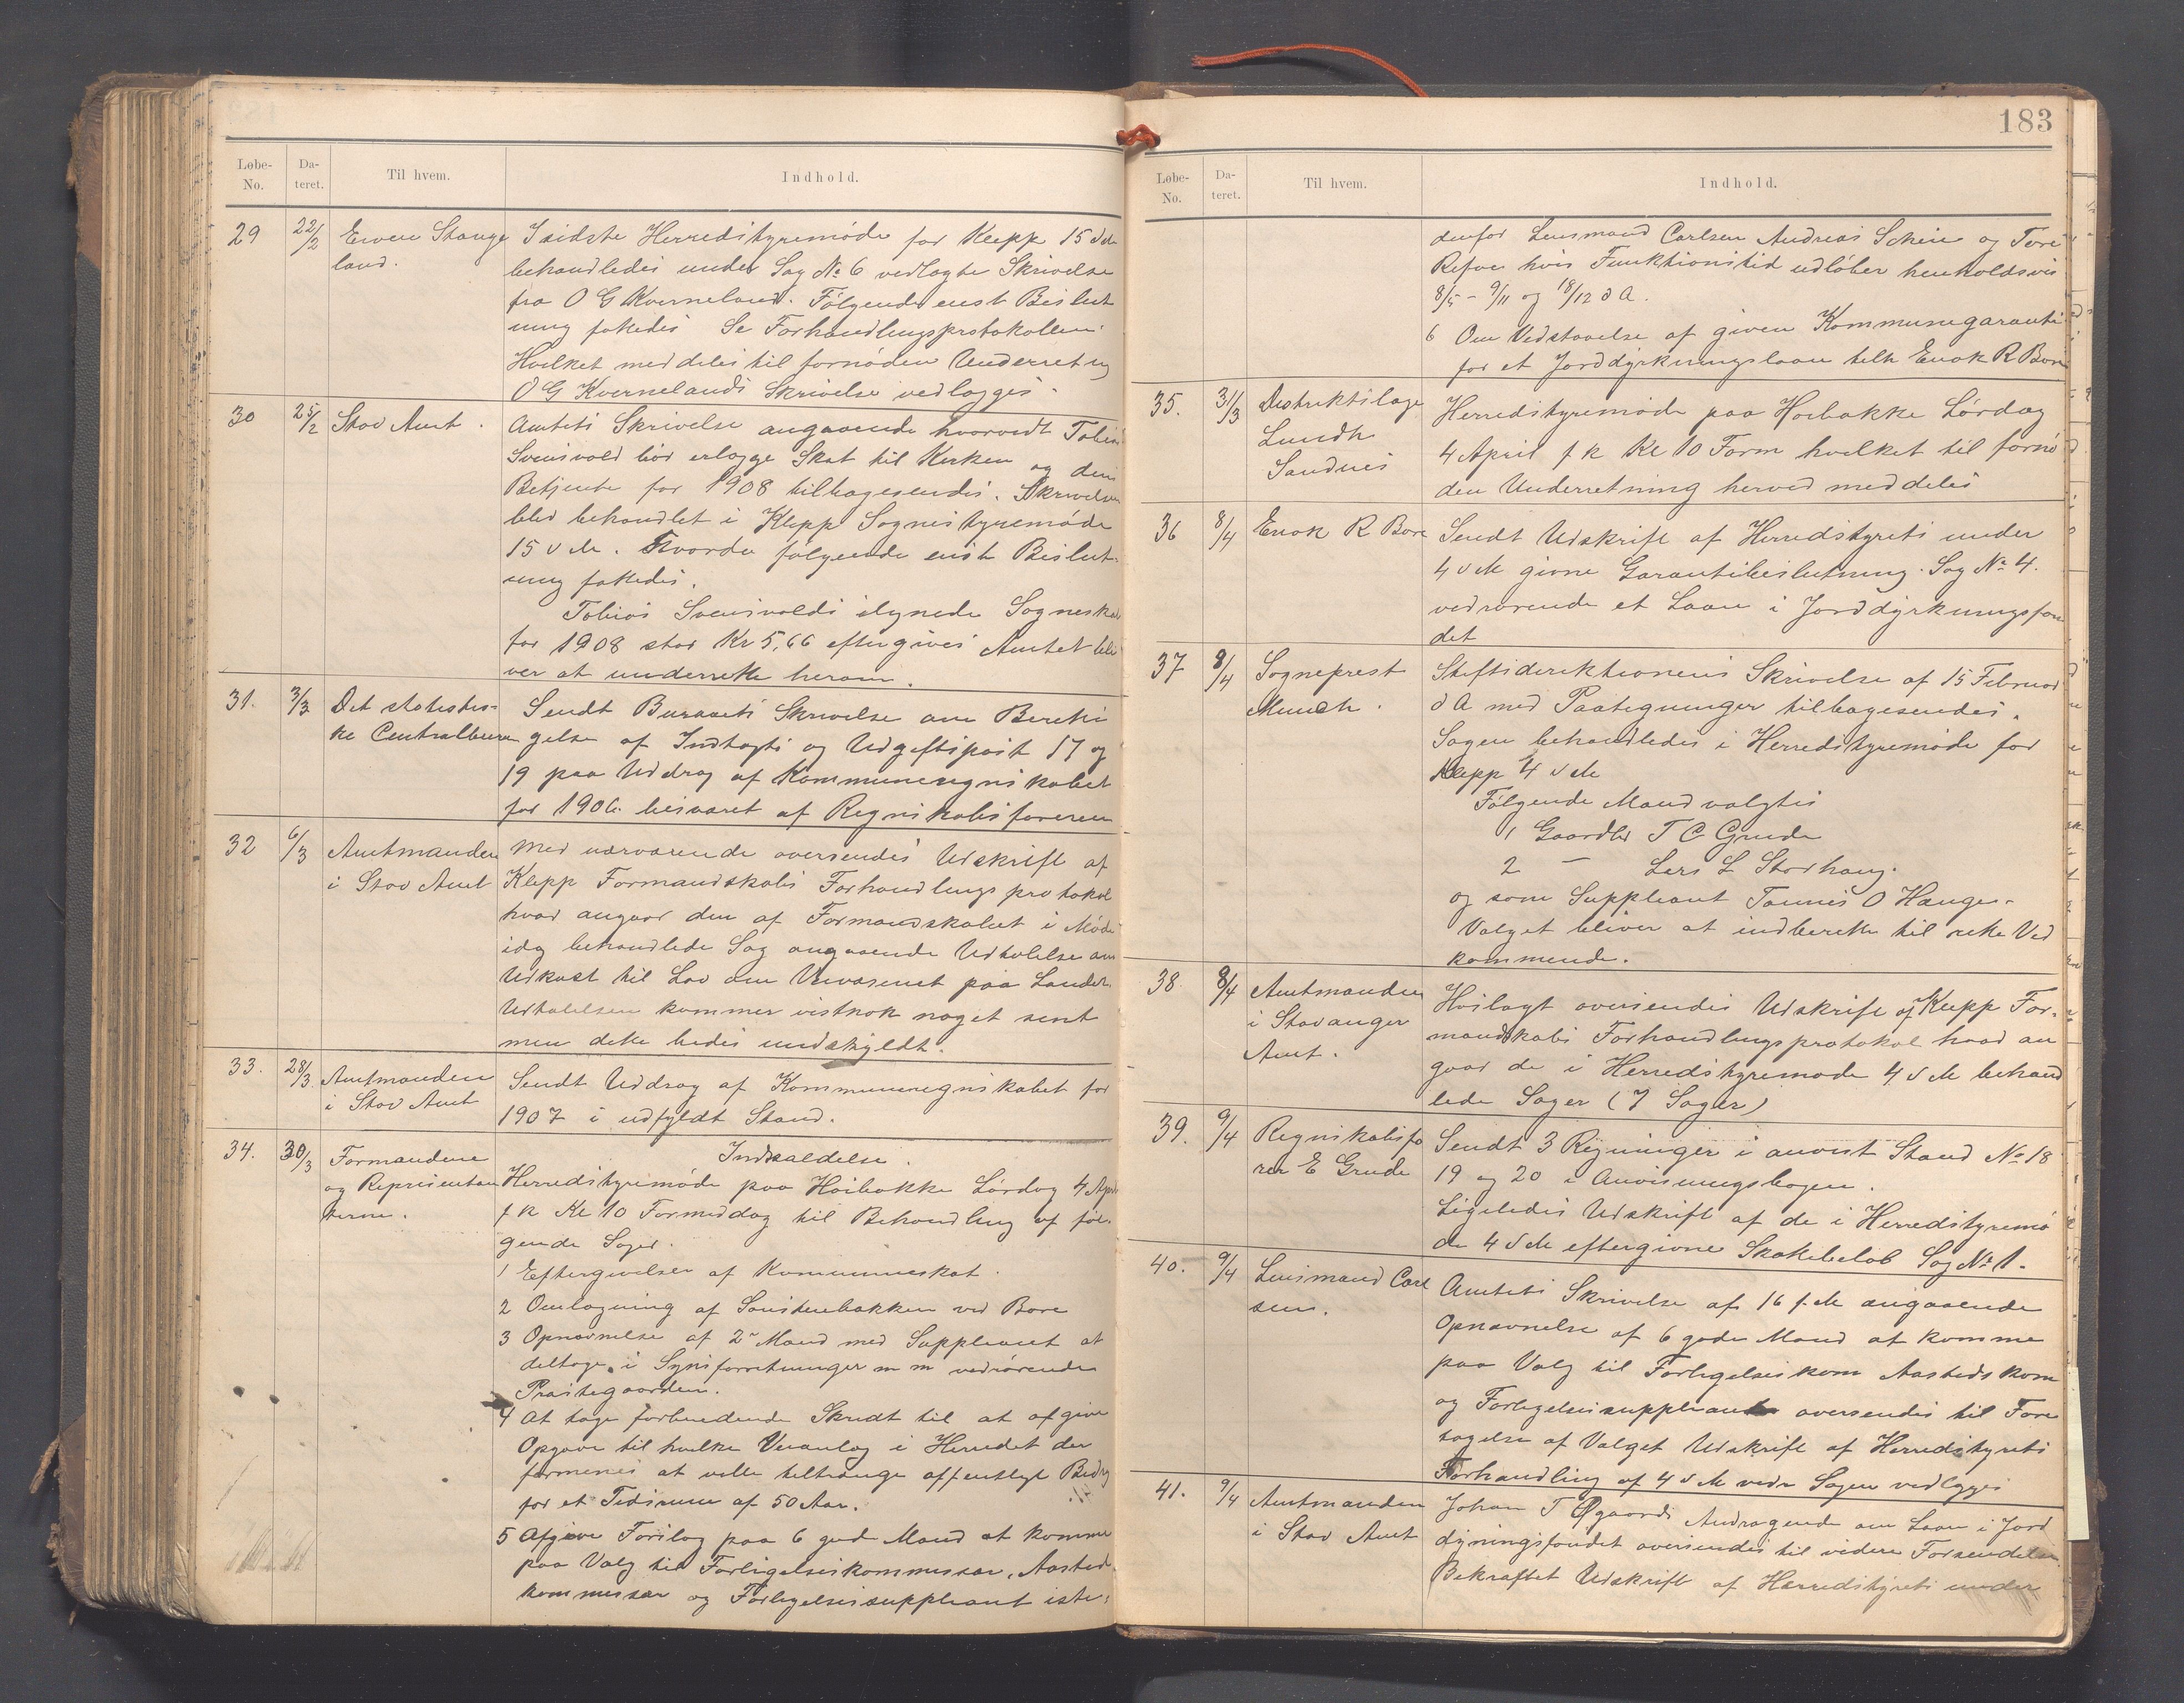 Løbe-No. Dateret. Til hvem. Indhold.
29 22/2 Ewen Stangeland.
I sidste Herredstyremøde for Klepp 15 d M
behandledes under Sag No 6 vedlagte Skrivelse
fra O G Kverneland. Følgende enst Beslut
ning fattedes Se Forhandlingsprotokollen.
Hvilket meddeles til fornøden Underretng
O G Kvernelands Skrivelse vedlægges.
30 25/2 Stav Amt.
Amtets Skrivelse angaaende hvorvidt Tobias
Svensvold bør erlægge Skat til Kirken og dens
Betjente for 1908 tilbagesendes. Skrivelsen
blev behandlet i Klepp Sognestyremøde
15 d M. Hvorda følgende enst Beslut-
ning fattedes.
Tobias Svensvolds ilignede Sogneskat
for 1908 stor Kr 5,66 eftergives Amtet bli
ver at underrette herom.
31. 3/3 Det statistis-
ke Centralbureau
Sendt Buraaets Skrivelse om Beretti
gelse af Indtægts og Udgiftspost 17 og
19 paa Uddrag af Kommuneregnskabet
for 1906. besvaret af Regnskabsføreren
32 6/3 Amtmanden
i Stav Amt
Med nærværende oversendes Udskrift af
Klepp Formandskabs Forhandlings protokol
hvad angaar den af Formandskabet i Møde
idag behandlede Sag angaaende Udtalelse om
Udkast til Lov om Veivæsenet paa Landet.
Udtalelsen kommer vistnok noget sent
men dette bedes undskyldt.
33. 28/3. Amtmanden
i Stav Amt
Sendt Uddrag af Kommuneregnskabet for
1907 i udfyldt Stand.
34. 30/3 Formændene
og Repræsentan
terne.
Indkaldelse.
Herredstyremøde paa Høibakke Lørdag 4 April
f k Kl 10 Formiddag til Behandling af føl-
gende Sager.
1 Eftergivelser af Kommuneskat.
2 Omlægning af Sonstenbakken ved Bore
3 Opnævnelse af 2 Mænd med Suppleant at
deltage i Synsforretninger m m vedrørende
Præstegaarden.
4 At tage forberedende Skridt til at afgive
Opgave til hvilke Veianlæg i Herredet der
formenes at ville tiltrænge offentligt Bidrag
for et Tidsrum af 50 Aar.
5 Afgive Forslag paa 6 gode Mænd at komme
paa Valg til Forligelseskommissær, Aasteds
kommissær og Forligelsessuppleant iste-
183
Løbe-No. Dateret. Til hvem. Indhold.
denfor Lensmand Carlsen Andreas Scheie og Tore
Refve hvis Funktionstid udløber henholdsvis
8/5 - 9/11 og 18/12 d A.
6 Om Vedstaaelse af given Kommunegaranti
for et Jorddyrkningslaan tilh Enok R Bore
35. 31/3 Distriktslæge
Lundh
Sandnes
Herredstyremøde paa Høibakke Lørdag
4 April f k Kl 10 Form hvilket til fornø
den Underretning herved meddeles
36 8/4 Enok R Bore
Sendt Udskrift af Herredstyrets under
4 d M givne Garantibeslutning. Sag No 4.
vedrørende et Laan i Jorddyrkningsfon
det
37 8/4 Sogneprest
Munch.
Stiftsdirektionens Skrivelse af 15 Februar
d A med Paategninger tilbagesendes.
Sagen behandledes i Herredstyremøde for
Klepp 4 d M
Følgende Mænd valgtes
1 Gaardbr T C Grude
2 — Lars L Storhaug.
og som Suppleant Tønnes O Hauge.
Valget bliver at indberette til rette Ved
kommende.
38. 8/4 Amtmanden
i Stavanger
Amt.
Hoslagt oversendes Udskrift af Klepp For-
mandskabs Forhandlingsprotokol hvad an
gaar de i Herredstyremøde 4 d M behand
lede Sager (7 Sager)
39. 9/4 Regnskabsfø
rer E Grude
Sendt 3 Regninger i anvist Stand No 18
19 og 20 i Anvisningsbogen.
Ligeledes Udskrift af de i Herredstyremø
de 4 d M eftergivne Skattebeløb Sag No 1.
40. 9/4 Lensmand Carl
sen.
Amtets Skrivelse af 16 f. M angaaende
Opnævnelse af 6 gode Mænd at komme
paa Valg til Forligelseskom Aastedskom
og Forligelsessuppleanter oversendes til Fore
tagelse af Valget Udskrift af Herredstyrets
Forhandling af 4 d M vedr Sagen vedlægges
41. 9/4 Amtmanden
i Stav Amt
Johan T Øgaards Andragende om Laan i Jord
dyrningsfondet oversendes til videre Forsendelse.
Bekræftet Udskrift af Herredstyrets under